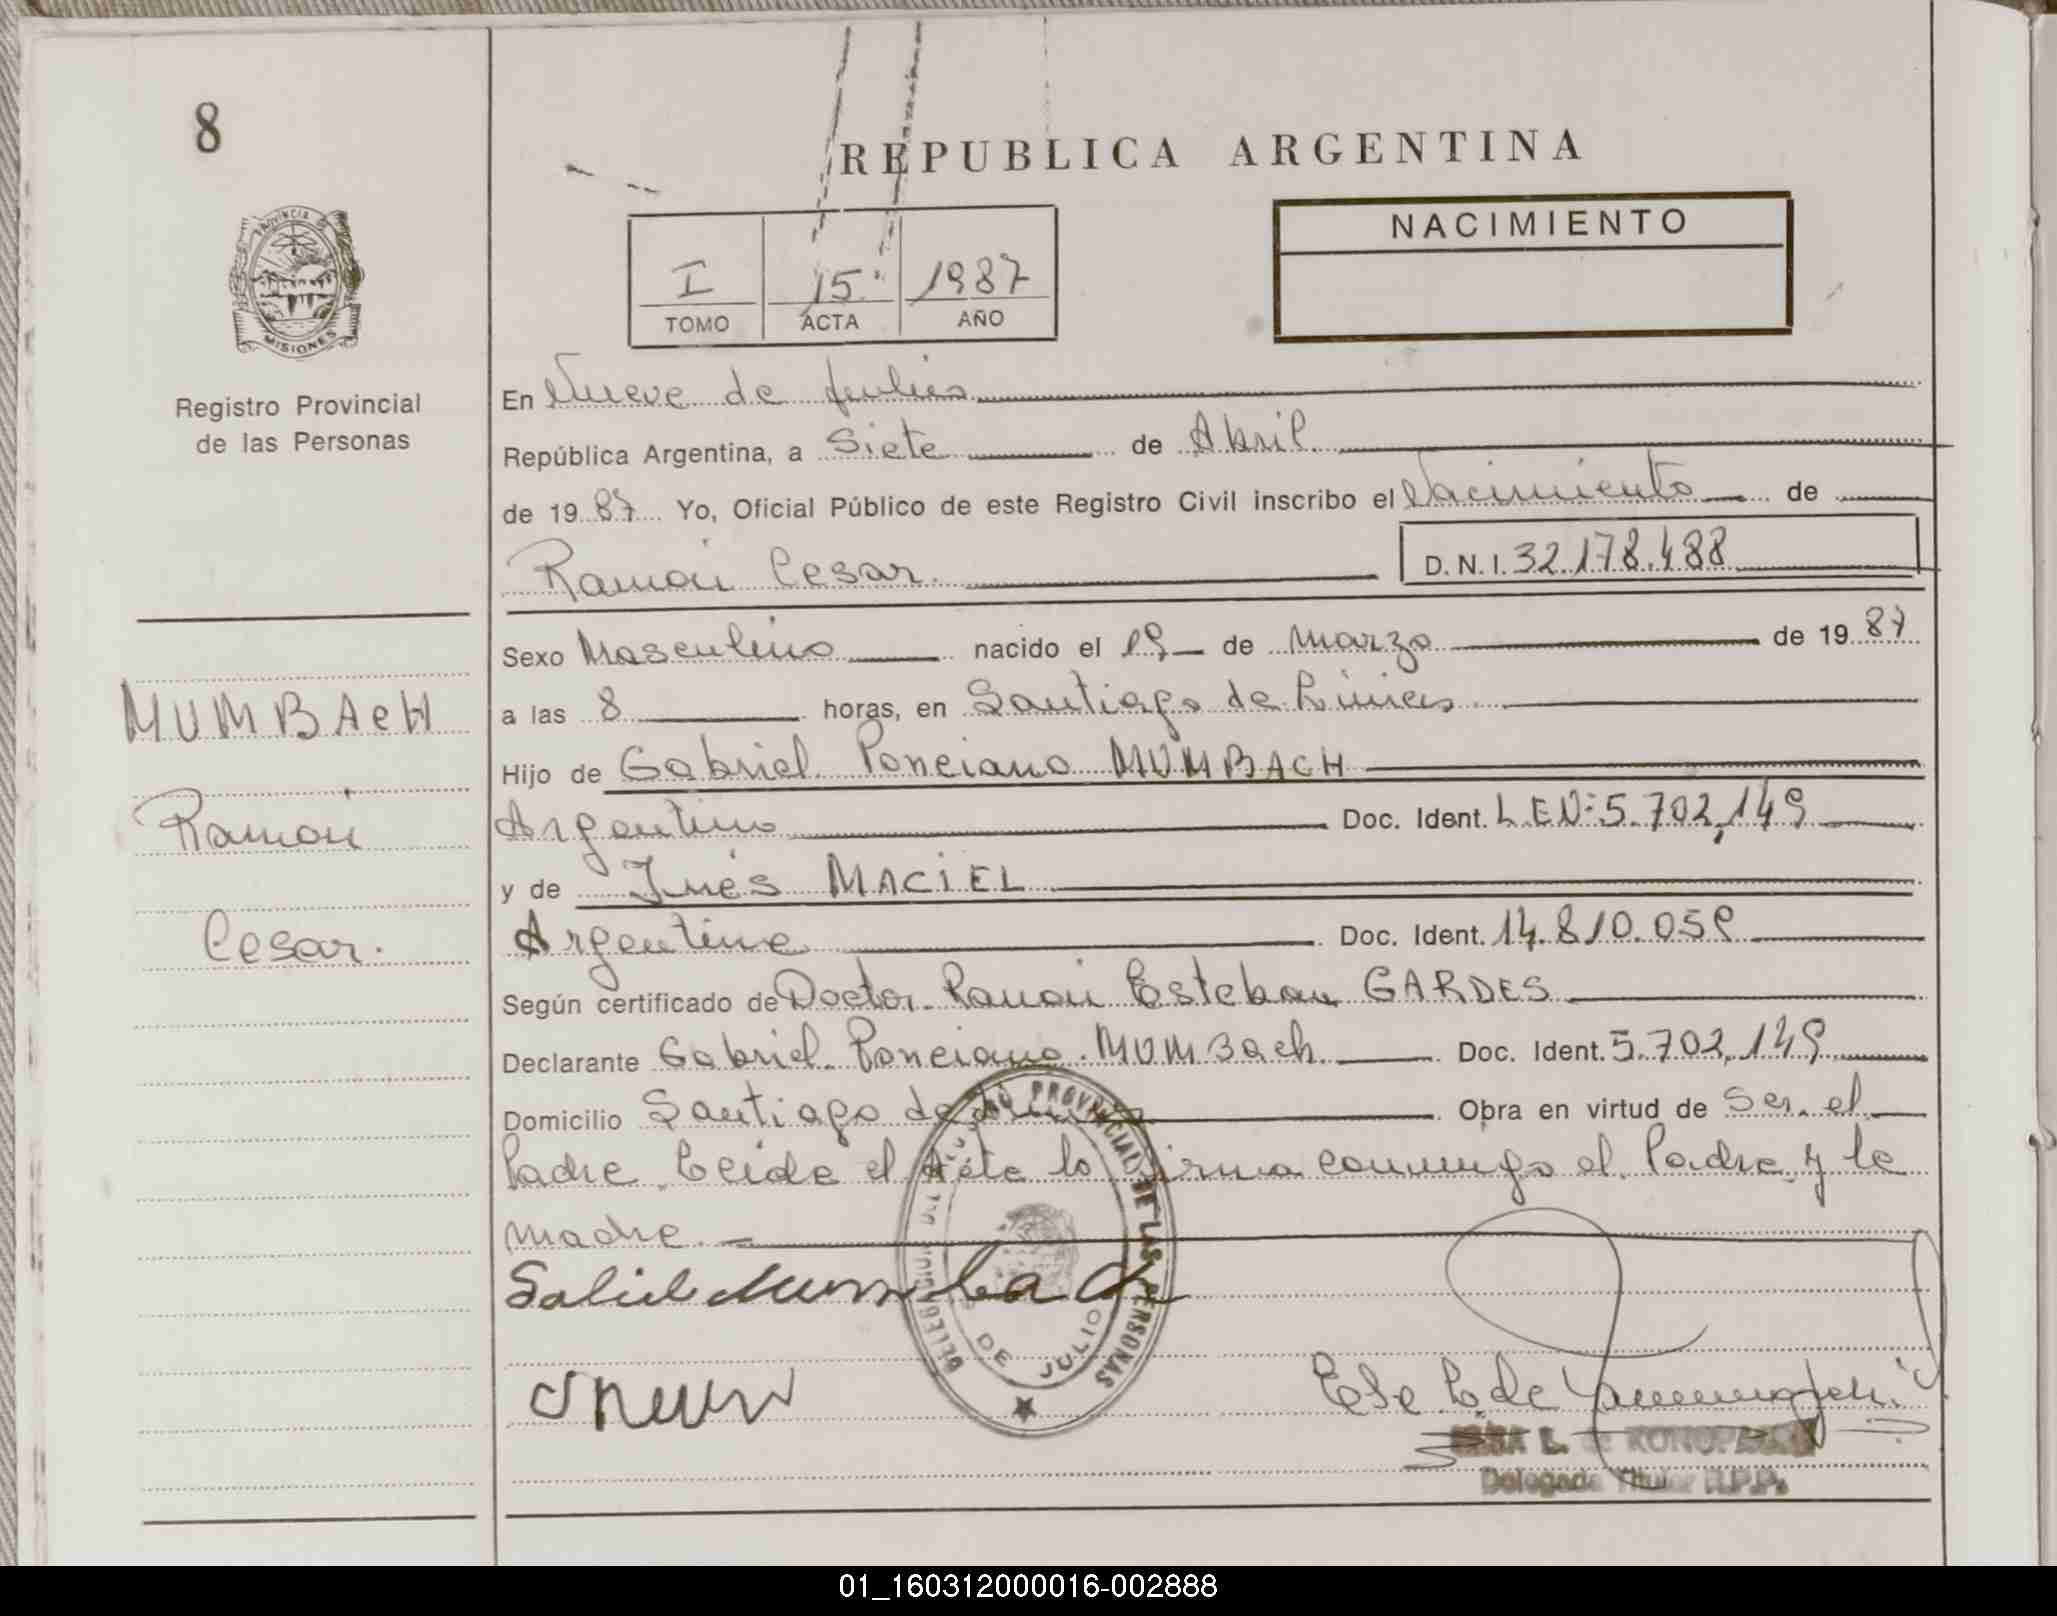 8
REPUBLICA ARGENTINA
NACIMIENTO
I 15 1987
TOMO ACTA AÑO
PROVINCIA DE
MISIONES
Registro Provincial
de las Personas
En Nueve de Julio
República Argentina, a Siete de Abril
de 1987 Yo, Oficial Público de este Registro Civil inscribo el Nacimiento de
Ramón Cesar. D.N.I. 32.178.488
Sexo Masculino nacido el 19 de Marzo de 1987
a las 8 horas, en Santiago de Liniers
Hijo de Gabriel Ponciano MUMBACH
Argentino Doc. Ident. L.E.Nº 5.702,149
y de Inés MACIEL
Argentina Doc. Ident. 14.810.059
Según certificado de Doctor Ramón Esteban GARDES
Declarante Gabriel Ponciano MUMBach Doc. Ident. 5.702,149
Domicilio Santiago de Obra en virtud de Ser el
Padre. Leida el Acta la firma conmigo el Padre y la
madre.
MUMBACH
Ramón
Cesar.
Mumbach
DELEGACION PROVINCIAL DE LAS PERSONAS
DE JULIO
L. de
Delegada Titular R.P.P.
01_160312000016-002888